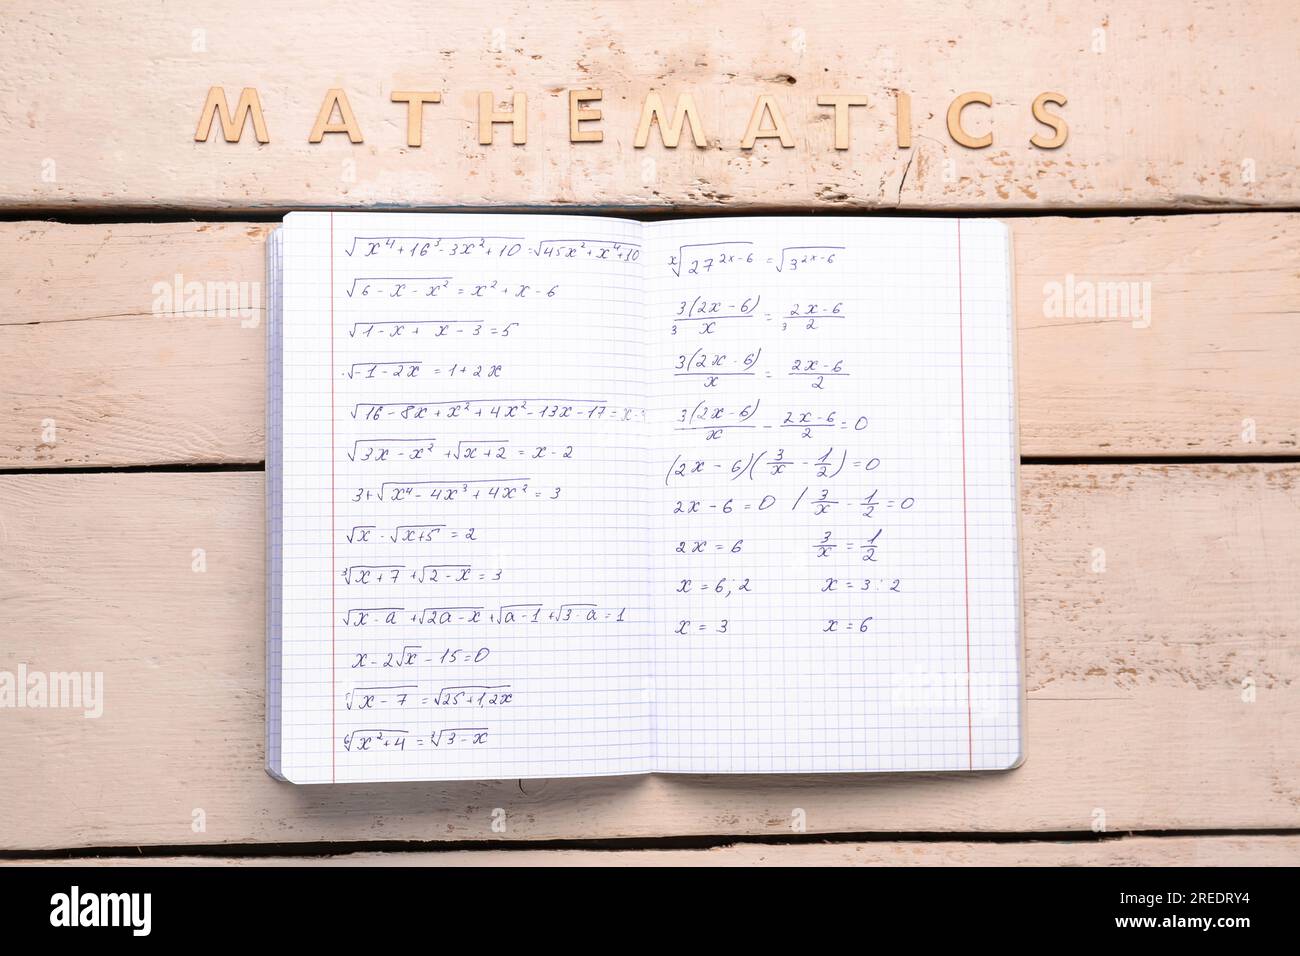 MATHEMATICS
√(x⁴+16³-3x²+10)=√(45x²+x⁴+10)
√(6-x-x²)=x²+x-6
√(1-x+x-3)=5
√(-1-2x)=1+2x
√(16-8x+x²+4x²-13x-17)=x-
√(3x-x²)+√(x+2)=x-2
3+√(x⁴-4x³+4x²)=3
√x-√(x+5)=2
³√(x+7)+√(2-x)=3
√(x-a)+√(2a-x)+√(a-1)+√(3-a)=1
x-2√x-15=0
√(x-7)=√(25+1,2x)
⁶√(x²+4)=√(3-x)
ˣ√(27²ˣ⁻⁶)=√(3²ˣ⁻⁶)
3^(3(2x-6)/x)=3^((2x-6)/2)
3(2x-6)/x=(2x-6)/2
3(2x-6)/x-(2x-6)/2=0
(2x-6)(3/x-1/2)=0
2x-6=0 / 3/x-1/2=0
2x=6 3/x=1/2
x=6:2 x=3:2
x=3 x=6
alamy
Image ID: 2REDRY4
www.alamy.com